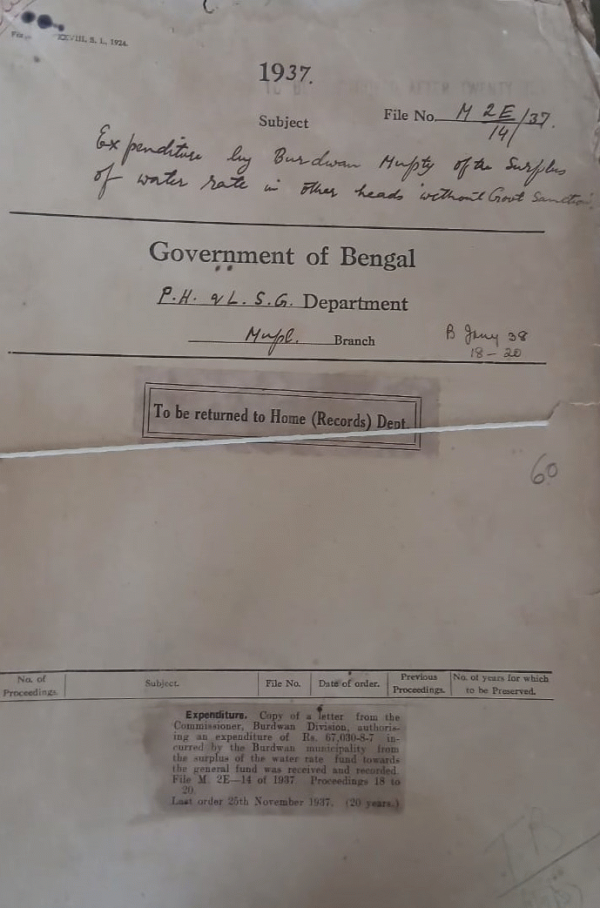 XXVIII, S. I., 1924.
1937.
AFTER TWENTY
Subject
File No. M 2E/37.
14
Expenditure by Burdwan Mupty of the Surplus
of water rate in other heads without Govt Sanction.
Government of Bengal
P.H. & L.S.G. Department
Mupl. Branch
B Jany 38
18-20
To be returned to Home (Records) Dept.
60
No. of Proceedings.
Subject.
File No.
Date of order.
Previous Proceedings.
No. of years for which to be Preserved.
Expenditure. Copy of a letter from the
Commissioner, Burdwan Division, authoris-
ing an expenditure of Rs. 67,030-8-7 in-
curred by the Burdwan municipality from
the surplus of the water rate fund towards
the general fund was received and recorded.
File M. 2E—14 of 1937. Proceedings 18 to
20.
Last order 25th November 1937. (20 years.)